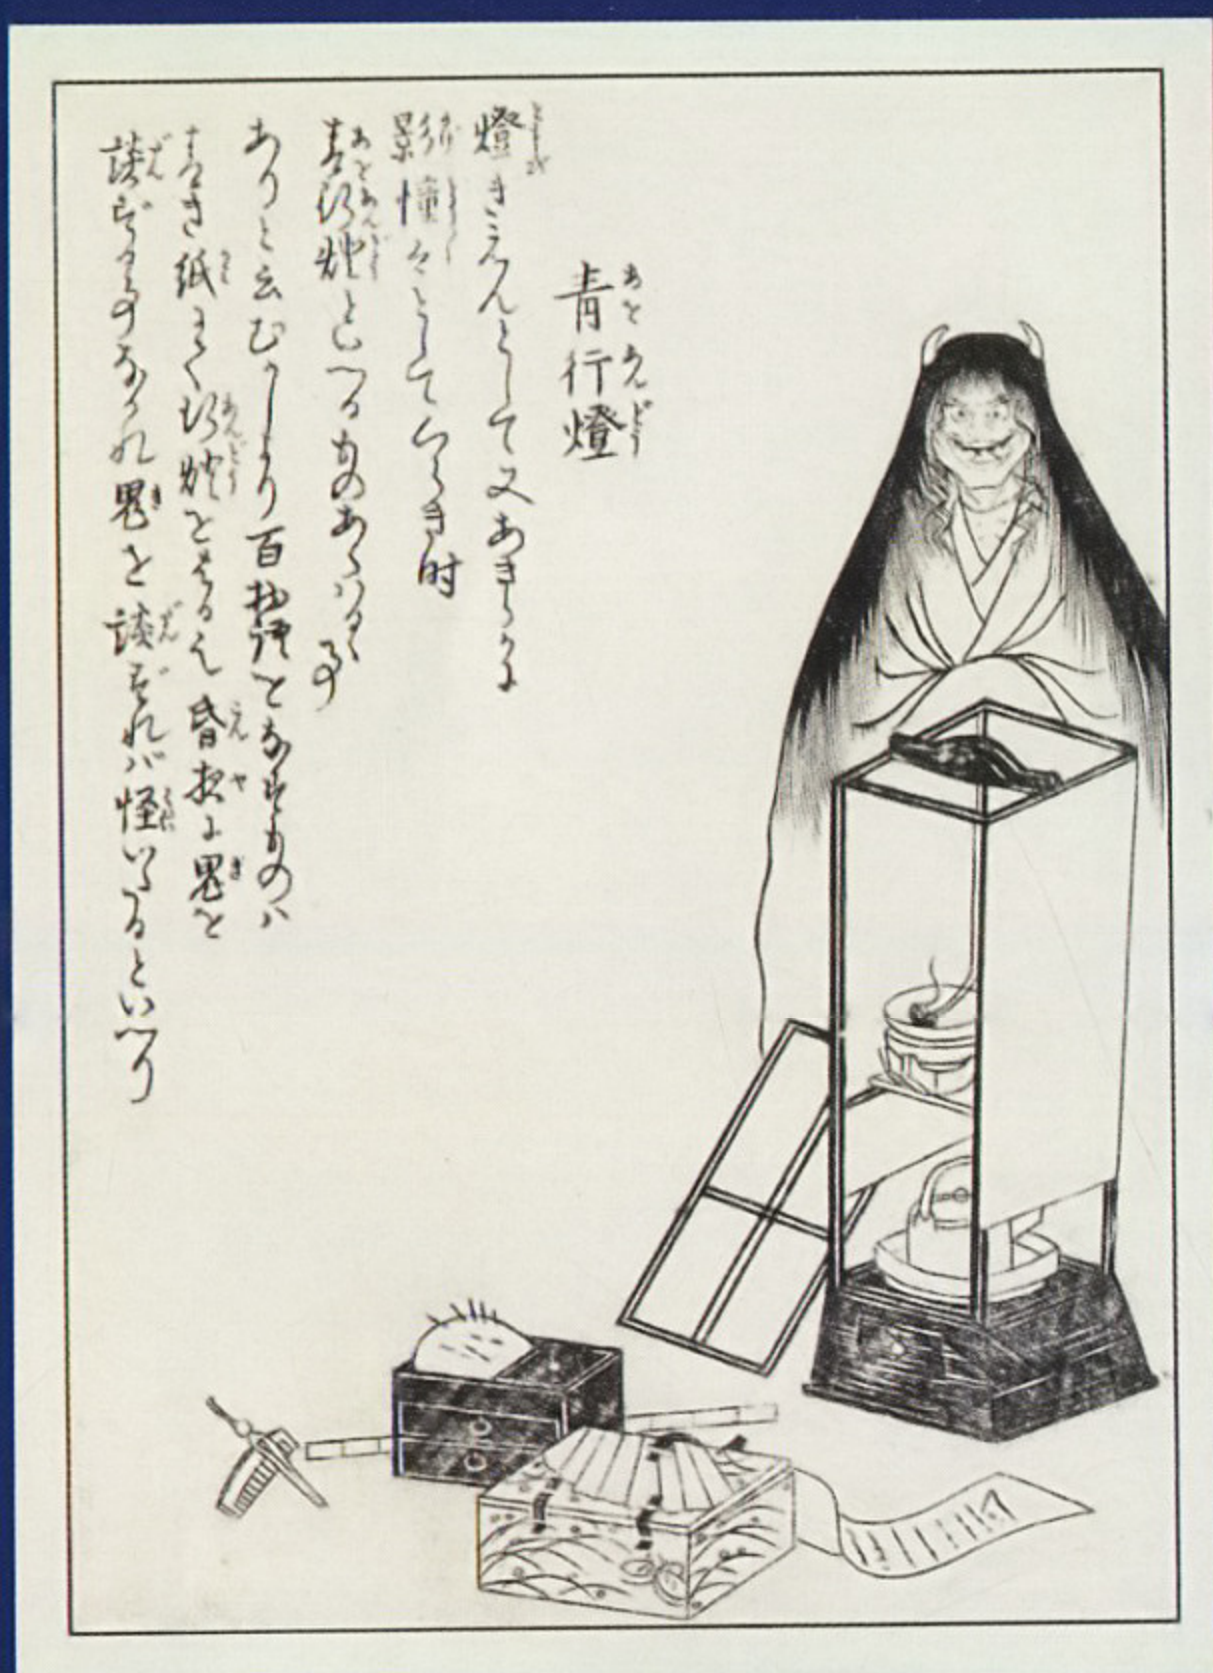 青行燈
燈きえんとして又あきらかに
影憧々としてくらき時
青行燈といへるものあらハるゝ事
ありと云むかしより百物語をなすものハ
青き紙にて行燈をはる也昏夜に鬼を
談ずる事なかれ鬼を談ずれバ怪いたるといへり